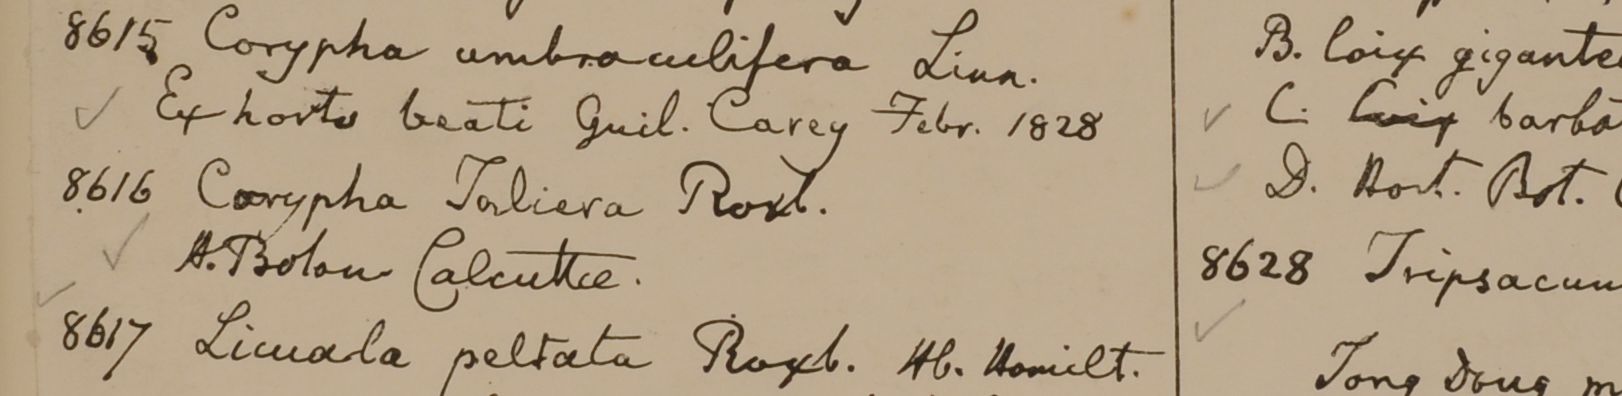 8615 Corypha umbraculifera Linn.
Ex horto beati Guil. Carey Febr. 1828
8616 Corypha Taliera Roxb.
H. Botan Calcuttae.
8617 Licuala peltata Roxb. Hb. Hamilt.
B. Coix gigante
C. Coix barba
D. Hort. Bot.
8628 Tripsacum
Tong Doug m